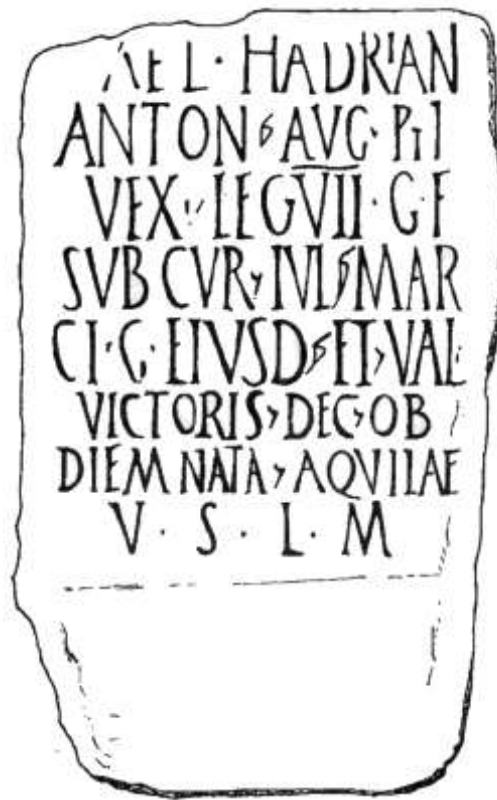 AEL · HADRIAN
ANTON AVG · PII
VEX · LEG VII · G · F
SVB CVR · IVL MAR
CI · C · EIVSD ET · VAL
VICTORIS · DEC · OB
DIEM NATA · AQVILAE
V · S · L · M